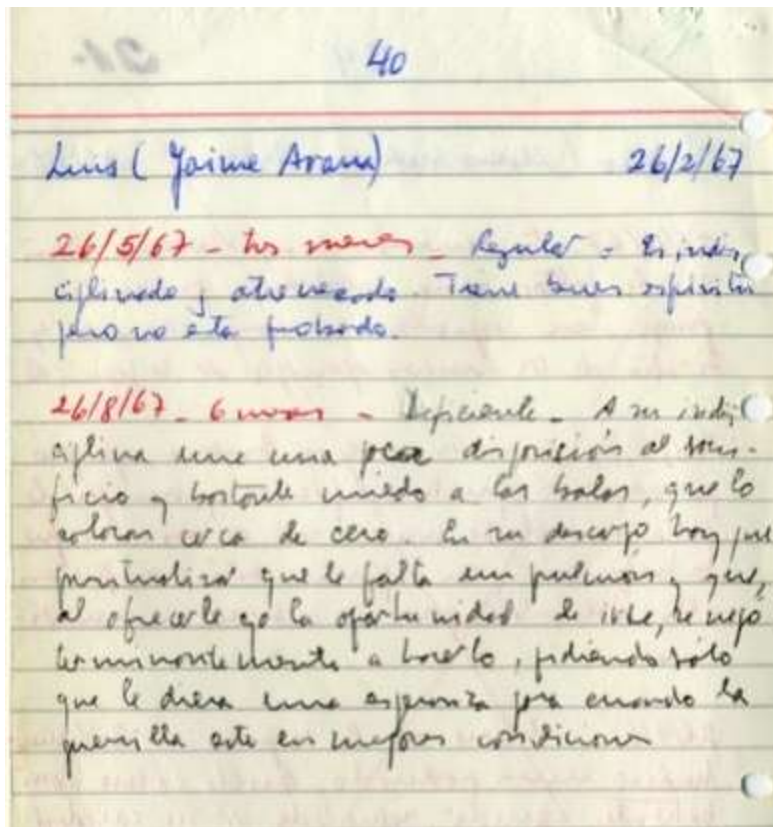 40
Luis ( Jaime Arana) 26/2/67
26/5/67 - tres meses - Regular - Es indis
ciplinado y atravesado. Tiene buen espíritu
pero no está probado.
26/8/67 - 6 meses - Deficiente - A su indis
ciplina une una poca disposición al sacri-
ficio y bastante miedo a las balas, que lo
colocan cerca de cero. En su descargo hay que
puntualizar que le falta un pulmón y que,
al ofrecerle yo la oportunidad de irse, se negó
terminantemente a hacerlo, pidiendo sólo
que le diera una esperanza para cuando la
guerrilla esté en mejores condiciones